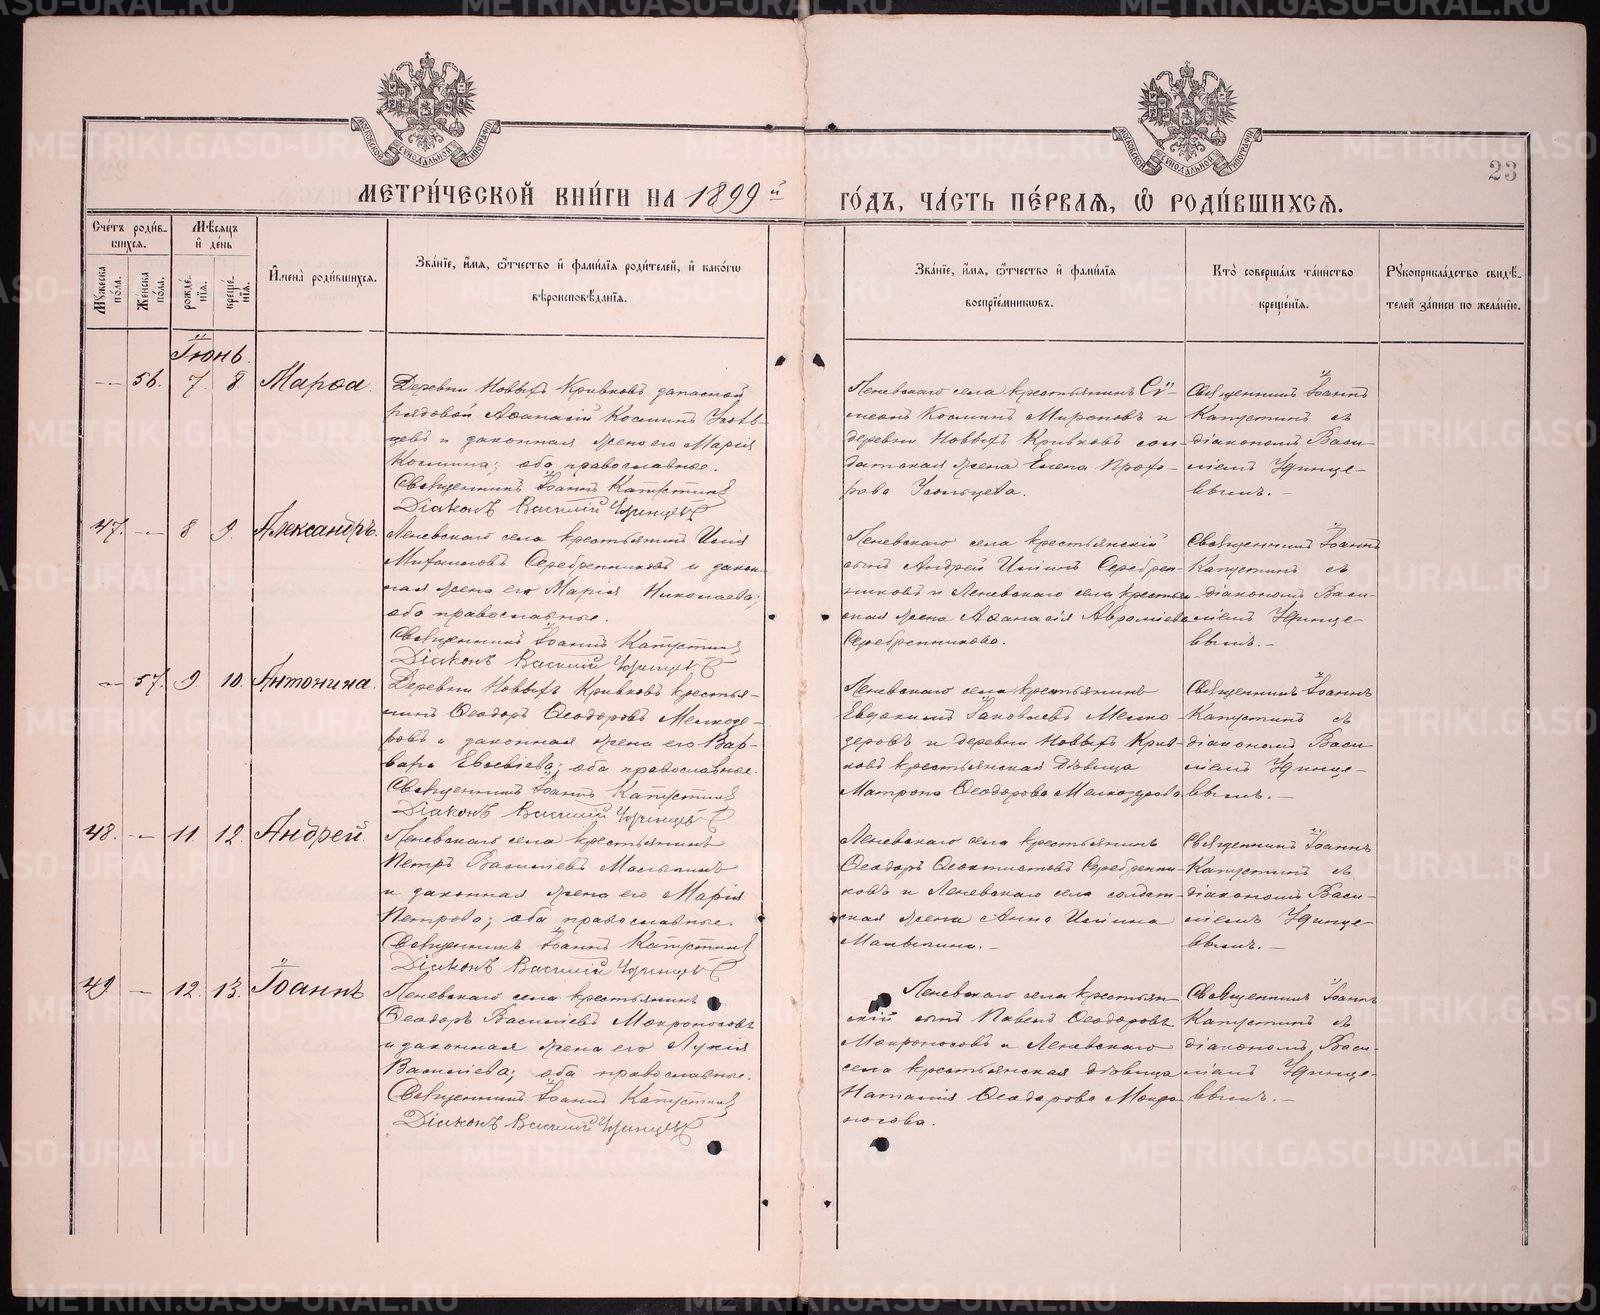 МЕТРИ́ЧЕСКОЙ КНИ́ГИ НА 1899й ГО́ДЪ, ЧА́СТЬ ПЕ́РВАѦ, Ѽ РОДИ́ВШИХСѦ.
23
Сче́тъ роди́в-
шихсѧ.
Мꙋжеска по́ла.
Же́нска по́ла.
Мѣ́сѧцъ и҆ де́нь
рожде́-
нїѧ.
креще́-
нїѧ.
И҆мена̀ роди́вшихсѧ.
Зва́нїе, и҆́мѧ, ѻ҆́тчество и҆ фами́лїѧ роди́телей, и҆ како́гѡ
вѣроисповѣ́данїѧ.
Зва́нїе, и҆́мѧ, ѻ҆́тчество и҆ фами́лїѧ
воспрїе́мниковъ.
Кто̀ соверша́лъ та́инство
креще́нїѧ.
Рꙋкоприкла́дство свидѣ́-
телей за́писи по жела́нїю.
Іюнь.
— 56. 7 8 Марѳа.
Деревни Новыхъ Кривковъ запасной
рядовой Аѳанасій Косминъ Усоль-
цевъ и законная жена его Марія
Космина; оба православные.
Священникъ Іоаннъ Капустинъ
Діаконъ Василій Удинцевъ
Леневскаго села крестьянинъ Си-
меонъ Косминъ Мироновъ и
деревни Новыхъ Кривковъ сол-
датская жена Елена Прохо-
рова Усольцева.
Священникъ Іоаннъ
Капустинъ съ
діакономъ Васи-
ліемъ Удинце-
вымъ. —
47. — 8 9. Александръ.
Леневскаго села крестьянинъ Илія
Серебренниковъ и закон-
ная жена его Марія Николаева;
оба православные.
Священникъ Іоаннъ Капустинъ
Діаконъ Василій Удинцевъ
Леневскаго села крестьянскій
сынъ Андрей Илиинъ Серебрен-
никовъ и Леневскаго села крестьян-
ская жена Аѳанасія
Серебренникова.
Священникъ Іоаннъ
Капустинъ съ
діакономъ Васи-
ліемъ Удинце-
вымъ. —
— 57. 9 10. Антонина.
Деревни Новыхъ Кривковъ крестья-
нинъ Ѳеодоръ Ѳеодоровъ Мелкозе-
ровъ и законная жена его Вар-
вара Евсевіева; оба православные.
Священникъ Іоаннъ Капустинъ
Діаконъ Василій Удинцевъ
Леневскаго села крестьянинъ
Евдокимъ Іаковлевъ Мелко-
зеровъ и деревни Новыхъ Крив-
ковъ крестьянская дѣвица
Матрона Ѳеодорова Мелкозерова
Священникъ Іоаннъ
Капустинъ съ
діакономъ Васи-
ліемъ Удинце-
вымъ. —
48. — 11 12. Андрей.
Леневскаго села крестьянинъ
Петръ Василіевъ Малыгинъ
и законная жена его Марія
Петрова; оба православные.
Священникъ Іоаннъ Капустинъ
Діаконъ Василій Удинцевъ
Леневскаго села крестьянинъ
Ѳеодоръ Ѳеоктистовъ Серебренни-
ковъ и Леневскаго села солдат-
ская жена Анна Илиина
Малыгина. —
Священникъ Іоаннъ
Капустинъ съ
діакономъ Васи-
ліемъ Удинце-
вымъ. —
49 — 12. 13. Іоаннъ
Леневскаго села крестьянинъ
Ѳеодоръ Василіевъ Мокроносовъ
и законная жена его Лукія
Василіева; оба православные.
Священникъ Іоаннъ Капустинъ
Діаконъ Василій Удинцевъ
Леневскаго села крестьян-
скій сынъ Павелъ Ѳеодоровъ
Мокроносовъ и Леневскаго
села крестьянская дѣвица
Наталія Ѳеодорова Мокро-
носова.
Священникъ Іоаннъ
Капустинъ съ
діакономъ Васи-
ліемъ Удинце-
вымъ. —
METRIKI.GASO-URAL.RU